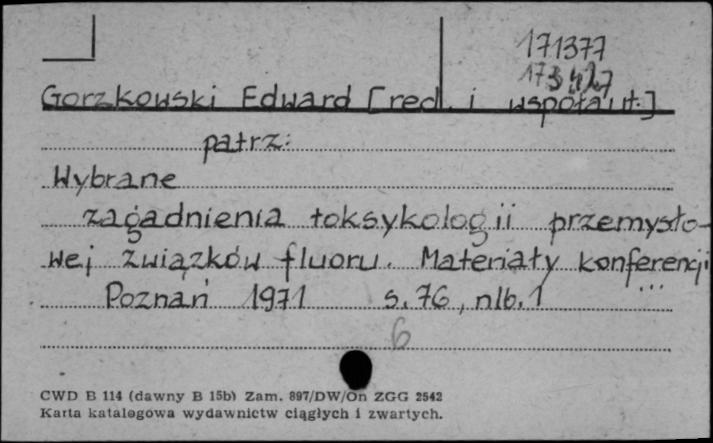 171377
173427
Gorzkowski Edward [red. i współaut.]
patrz:
Wybrane
zagadnienia toksykologii przemysło-
wej związków fluoru. Materiały konferencji
Poznań 1971 s. 76, nlb. 1 ...
6
CWD B 114 (dawny B 15b) Zam. 897/DW/On ZGG 2542
Karta katalogowa wydawnictw ciągłych i zwartych.